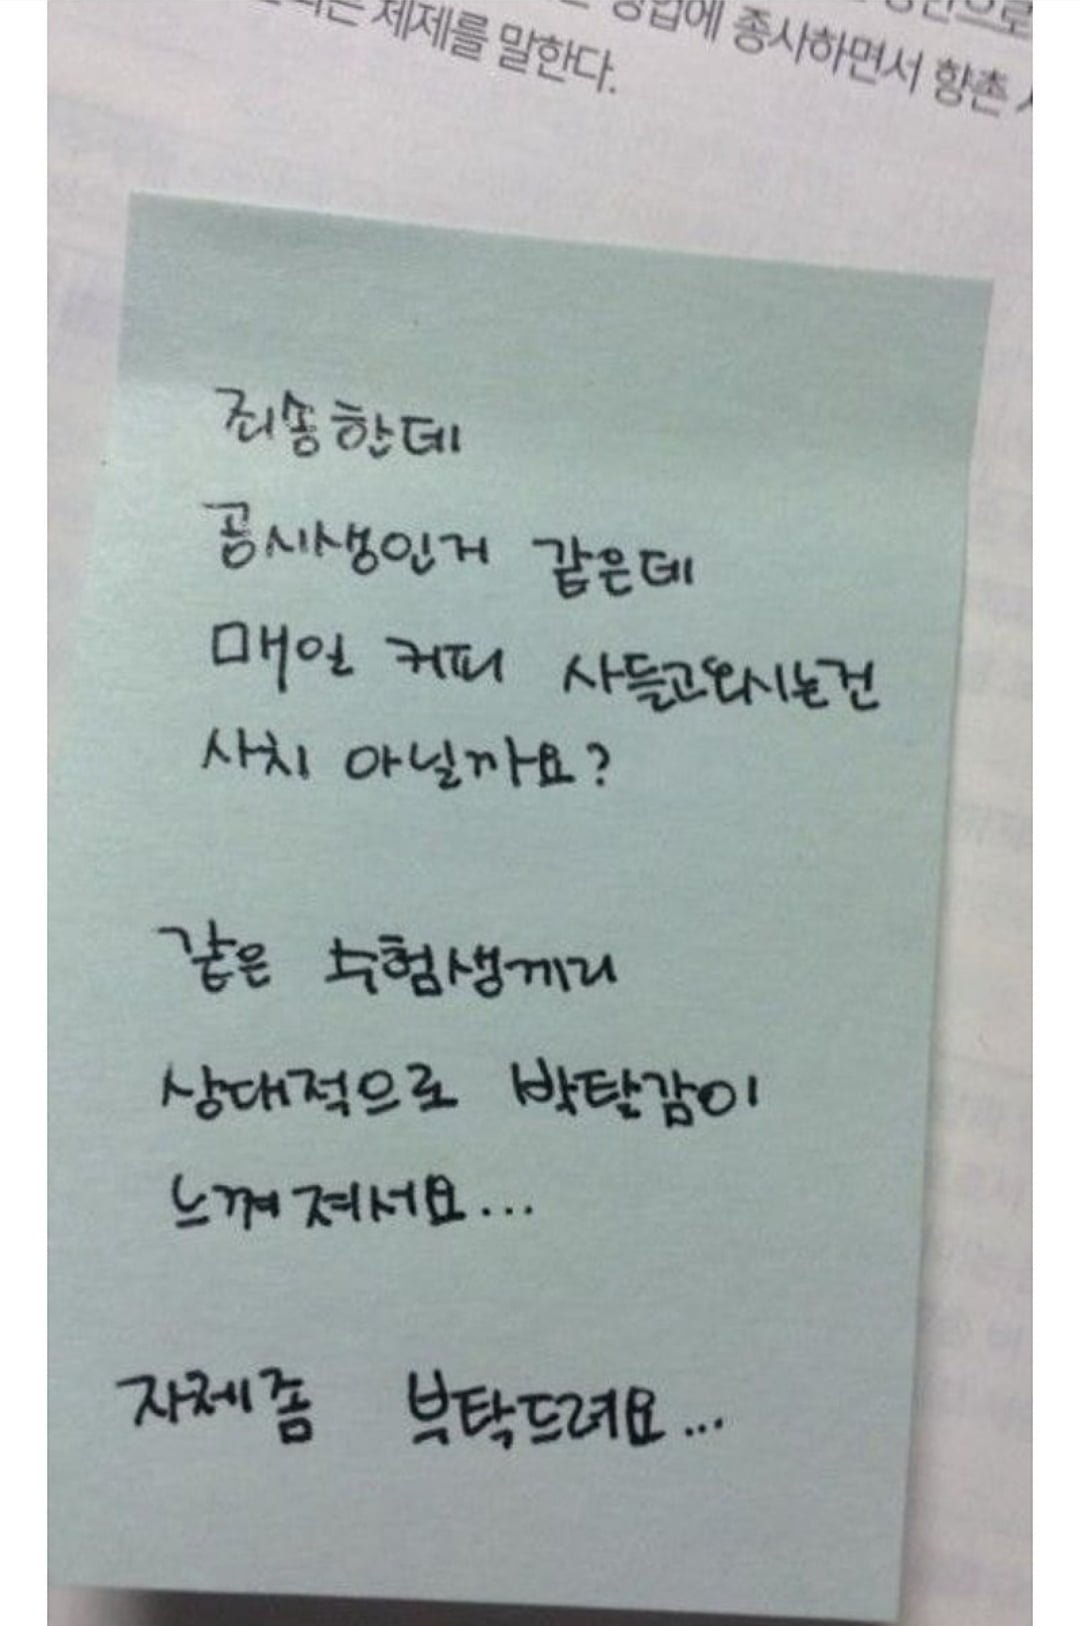 제제를 말한다.
종사하면서 향촌
죄송한데
공시생인거 같은데
매일 커피 사들고오시는건
사치 아닐까요?
같은 수험생끼리
상대적으로 박탈감이
느껴져서요...
자체좀 부탁드려요...